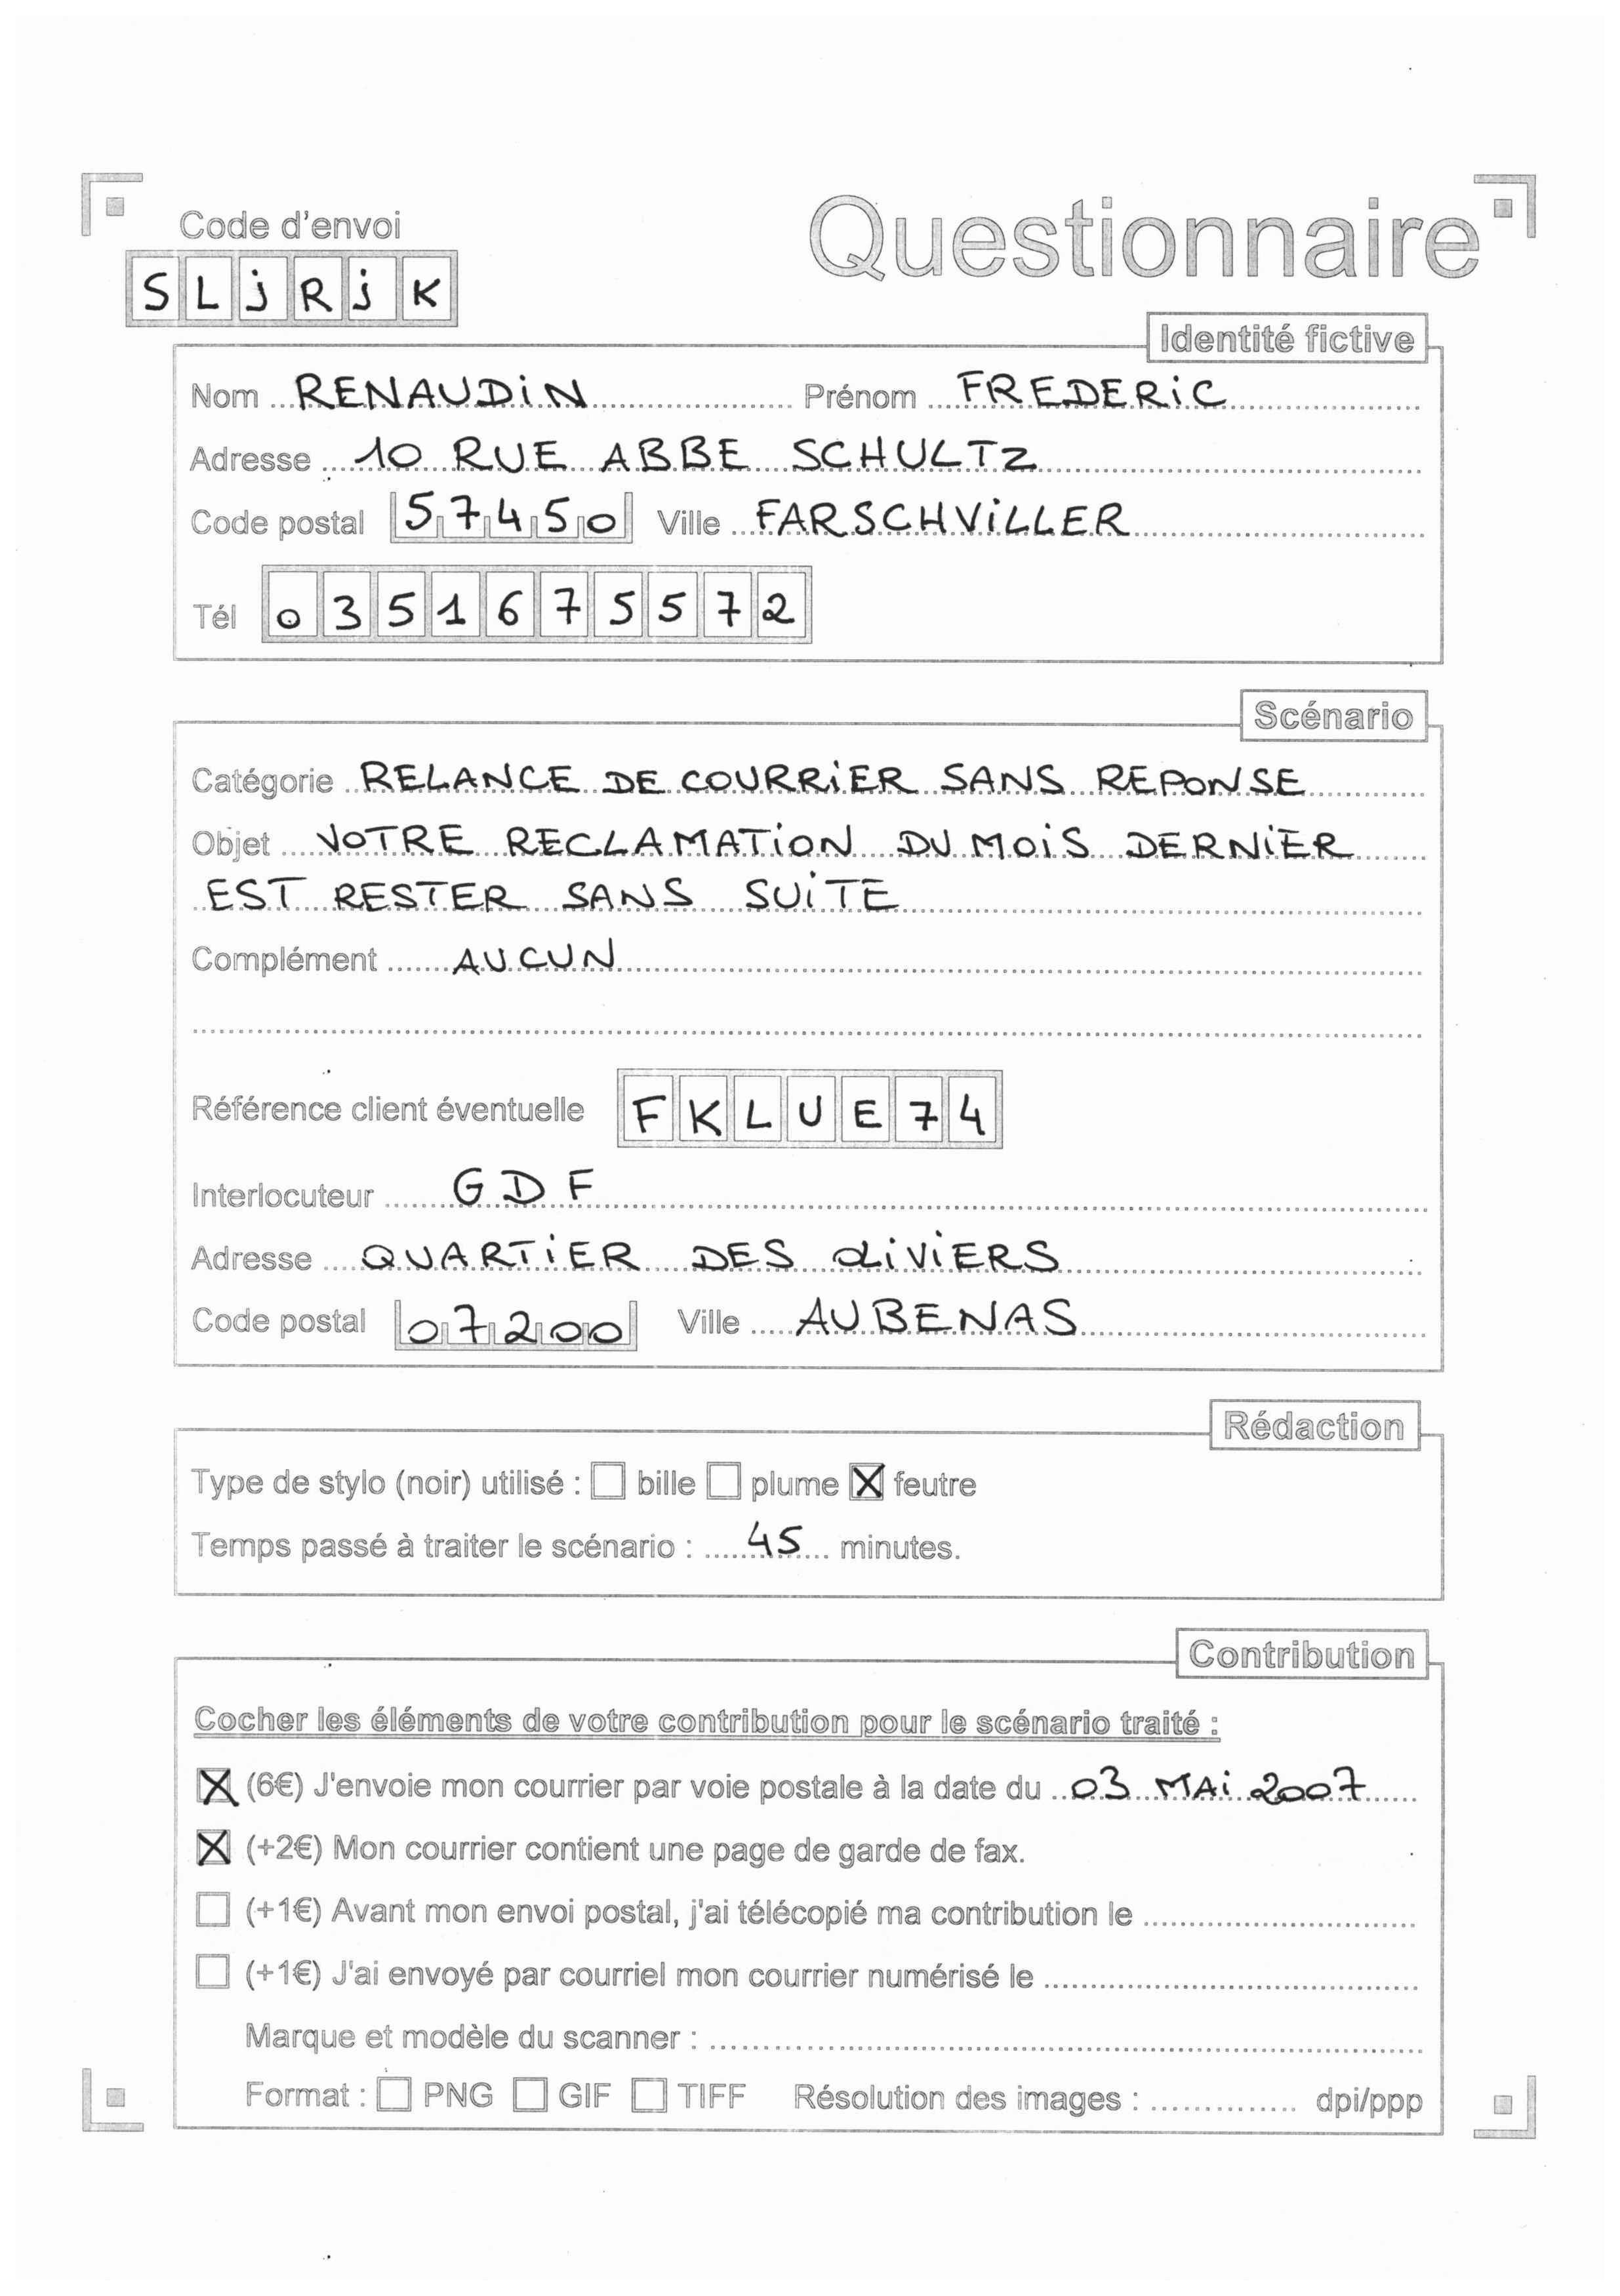 Code d'envoi
Questionnaire
SLjRjK
Identité fictive
Nom RENAUDiN Prénom FREDERiC
Adresse 10 RUE ABBE SCHULTZ
Code postal 57450 Ville FARSCHViLLER
Tél 0351675572
Scénario
Catégorie RELANCE DE COURRiER SANS REPONSE
Objet VOTRE RECLAMATiON DU MOiS DERNiER
EST RESTER SANS SUiTE
Complément AUCUN
Référence client éventuelle FKLUE74
Interlocuteur GDF
Adresse QUARTiER DES OLiViERS
Code postal 07200 Ville AUBENAS
Rédaction
Type de stylo (noir) utilisé : bille plume feutre
Temps passé à traiter le scénario : 45 minutes.
Contribution
Cocher les éléments de votre contribution pour le scénario traité :
(6€) J'envoie mon courrier par voie postale à la date du 03 MAi 2007
(+2€) Mon courrier contient une page de garde de fax.
(+1€) Avant mon envoi postal, j'ai télécopié ma contribution le
(+1€) J'ai envoyé par courriel mon courrier numérisé le
Marque et modèle du scanner :
Format : PNG GIF TIFF Résolution des images : dpi/ppp